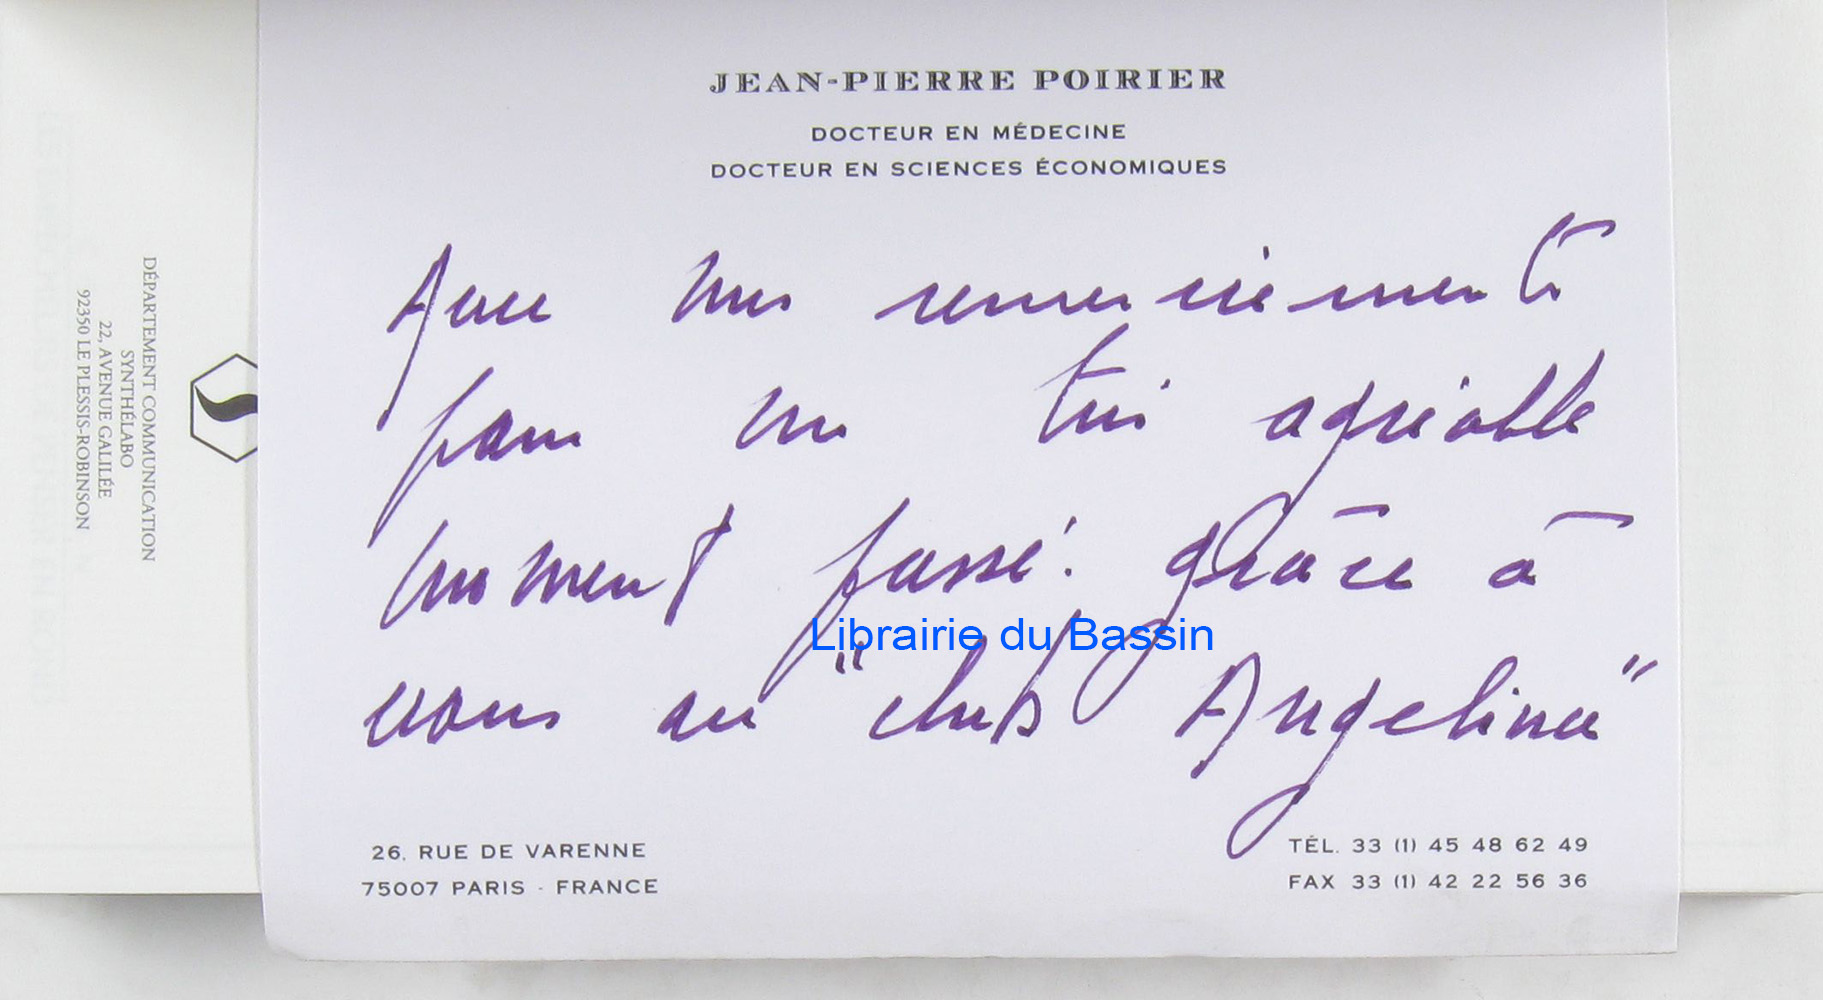 JEAN-PIERRE POIRIER
DOCTEUR EN MÉDECINE
DOCTEUR EN SCIENCES ÉCONOMIQUES
Avec mes remerciements
pour un très agréable
moment passé grâce à
vous au "club Angelina"
26, RUE DE VARENNE
75007 PARIS - FRANCE
TÉL. 33 (1) 45 48 62 49
FAX 33 (1) 42 22 56 36
DÉPARTEMENT COMMUNICATION
SYNTHÉLABO
22, AVENUE GALILÉE
92350 LE PLESSIS-ROBINSON
Librairie du Bassin